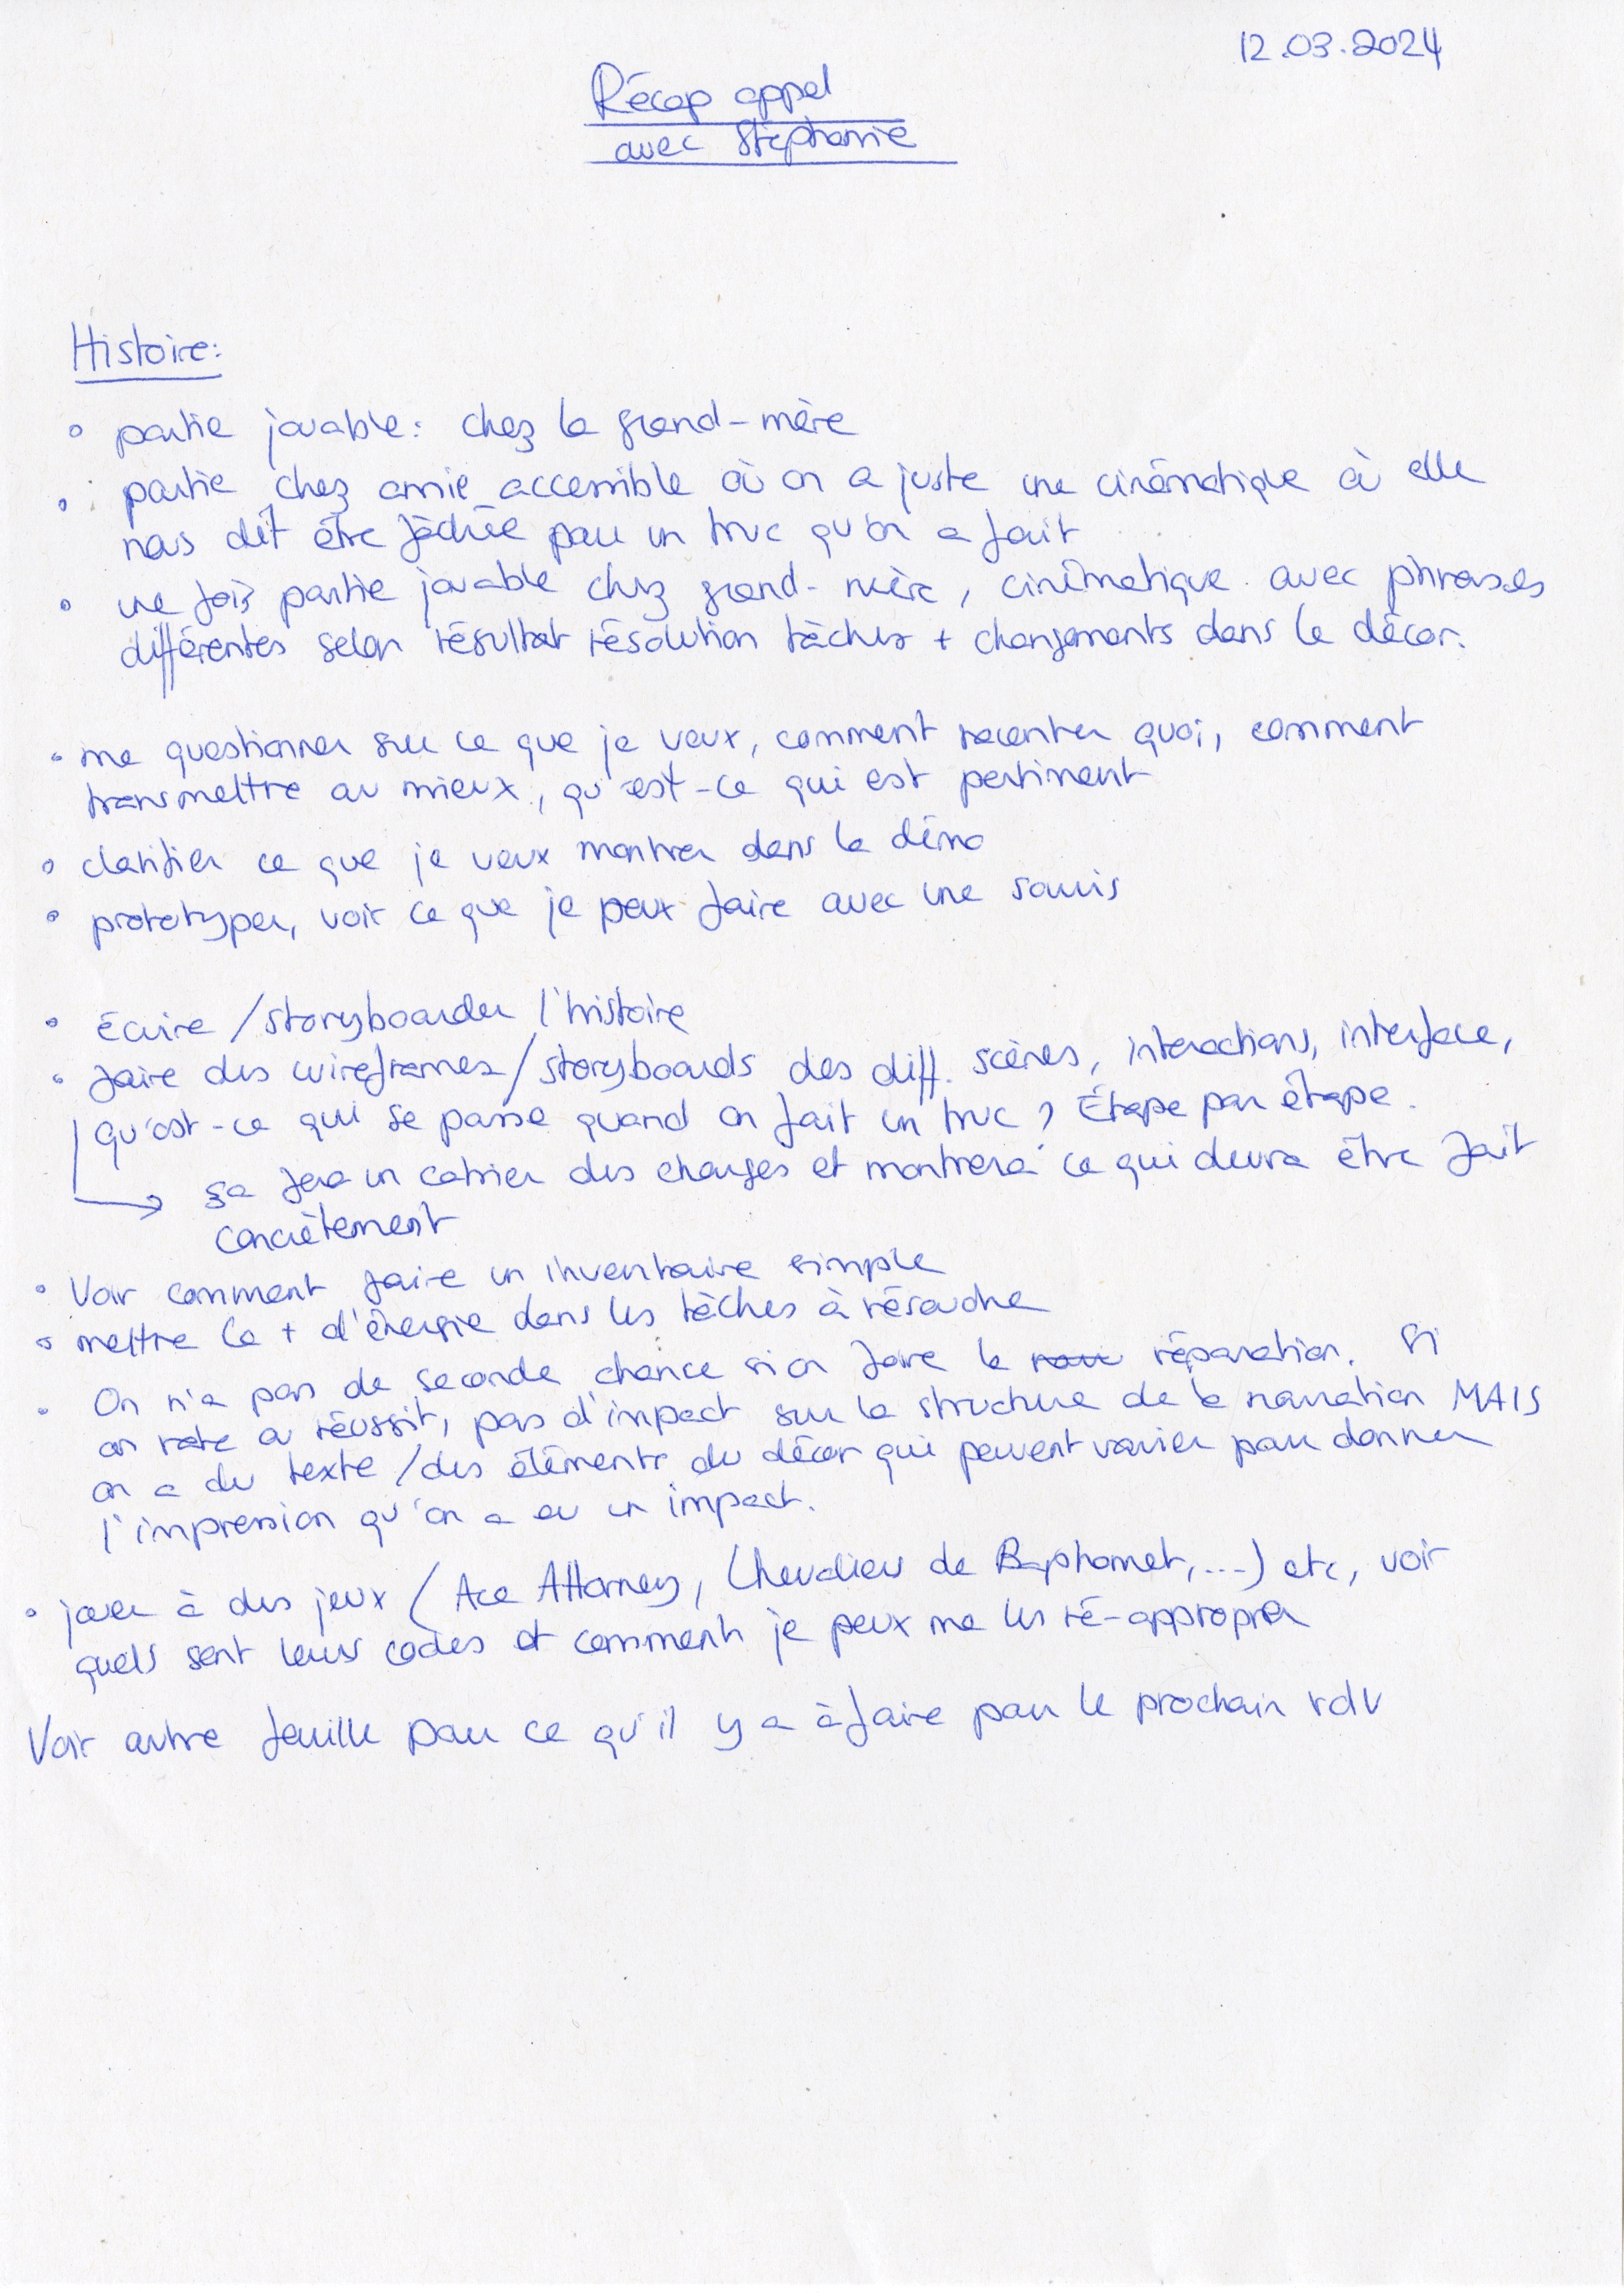 12.03.2024
Récap appel
avec Stéphanie
Histoire:
• partie jouable: chez la grand-mère
• partie chez amie accessible où on a juste une cinématique où elle
nous dit être fâchée pour un truc qu'on a fait
• une fois partie jouable chez grand-mère, cinématique avec phrases
différentes selon résultat résolution tâches + changements dans le décor.
• me questionner sur ce que je veux, comment raconter quoi, comment
transmettre au mieux, qu'est-ce qui est pertinent
• clarifier ce que je veux montrer dans la démo
• prototyper, voir ce que je peux faire avec une souris
• écrire / storyboarder l'histoire
• faire des wireframes/storyboards des diff. scènes, interactions, interface,
qu'est-ce qui se passe quand on fait un truc? Étape par étape.
→ ça fera un cahier des charges et montrera ce qui devra être fait
concrètement
• Voir comment faire un inventaire simple
• mettre le + d'énergie dans les tâches à résoudre
• On n'a pas de seconde chance si on foire la réparation. Si
on rate ou réussit, pas d'impact sur la structure de la narration MAIS
on a du texte / des éléments du décor qui peuvent varier pour donner
l'impression qu'on a eu un impact.
• jouer à des jeux (Ace Attorney, Chevaliers de Baphomet,...) etc, voir
quels sont leurs codes et comment je peux me les ré-approprier
Voir autre feuille pour ce qu'il y a à faire pour le prochain rdv